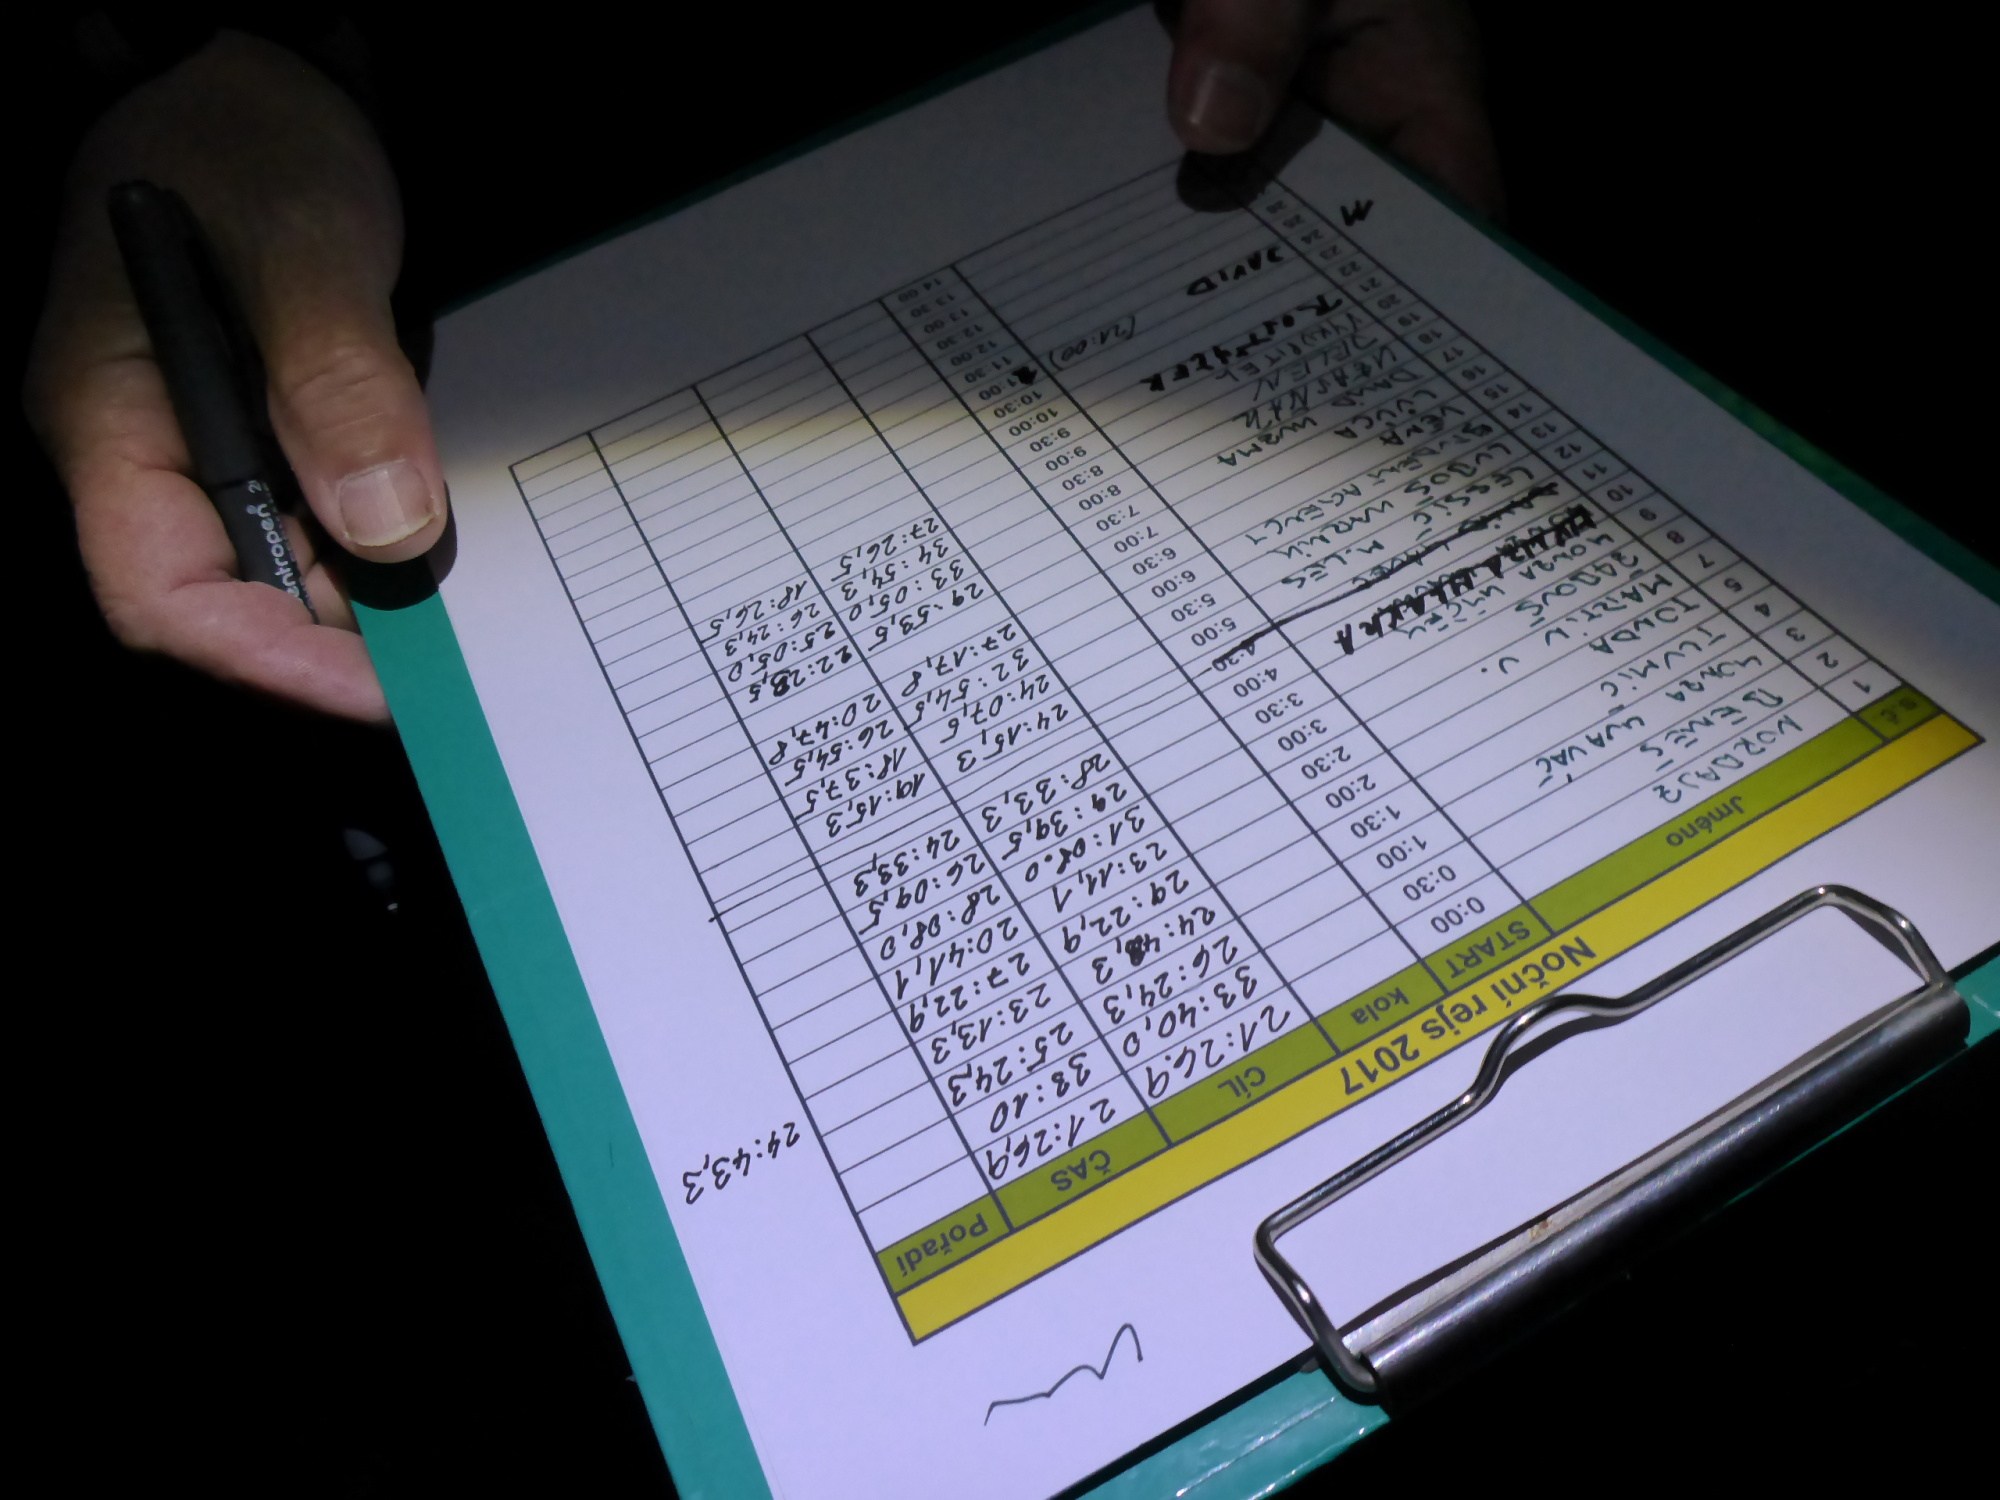 Noční rejs 2017
s.č. Jméno START kola CÍL ČAS Pořadí
1 0:00 21:26,9 21:26,9
2 BENEŠ 0:30 33:40,0 33:10
3 HONZA 1:00 26:24,3 25:24,3
4 TLUMIČ 1:30 23:13,3
24:43,3
5 TONDA 2:00 29:22,9 27:22,9
7 MARTIN V. 2:30 23:11,1 20:41,1
8 3:00 31:08.0 28:08,0
9 HONZA 3:30 29:39,5 26:09,5
10 4:00 28:33,3 24:33,3
11 4:30
12 LESSIČ M.LES 5:00 24:15,3 19:15,3
13 LUBOŠ 5:30 24:07,5 18:37,5
14 STUDENT AGENCY 6:00 32:54,5 26:54,5
15 6:30 27:17,8 20:47,8
16 7:00
17 DAVID 7:30 29:53,5 22:23,5
18 8:00 33:05,0 25:05,0
19 JELEN 8:30 34:54,3 26:24,3
20 VYKUPITEL 9:00 27:26,5 18:26,5
21 9:30
22 10:00
23 10:30
24 DAVID (21:00) 11:00
25 11:30
26 12:00
12:30
13:00
13:30
14:00
M
centropen